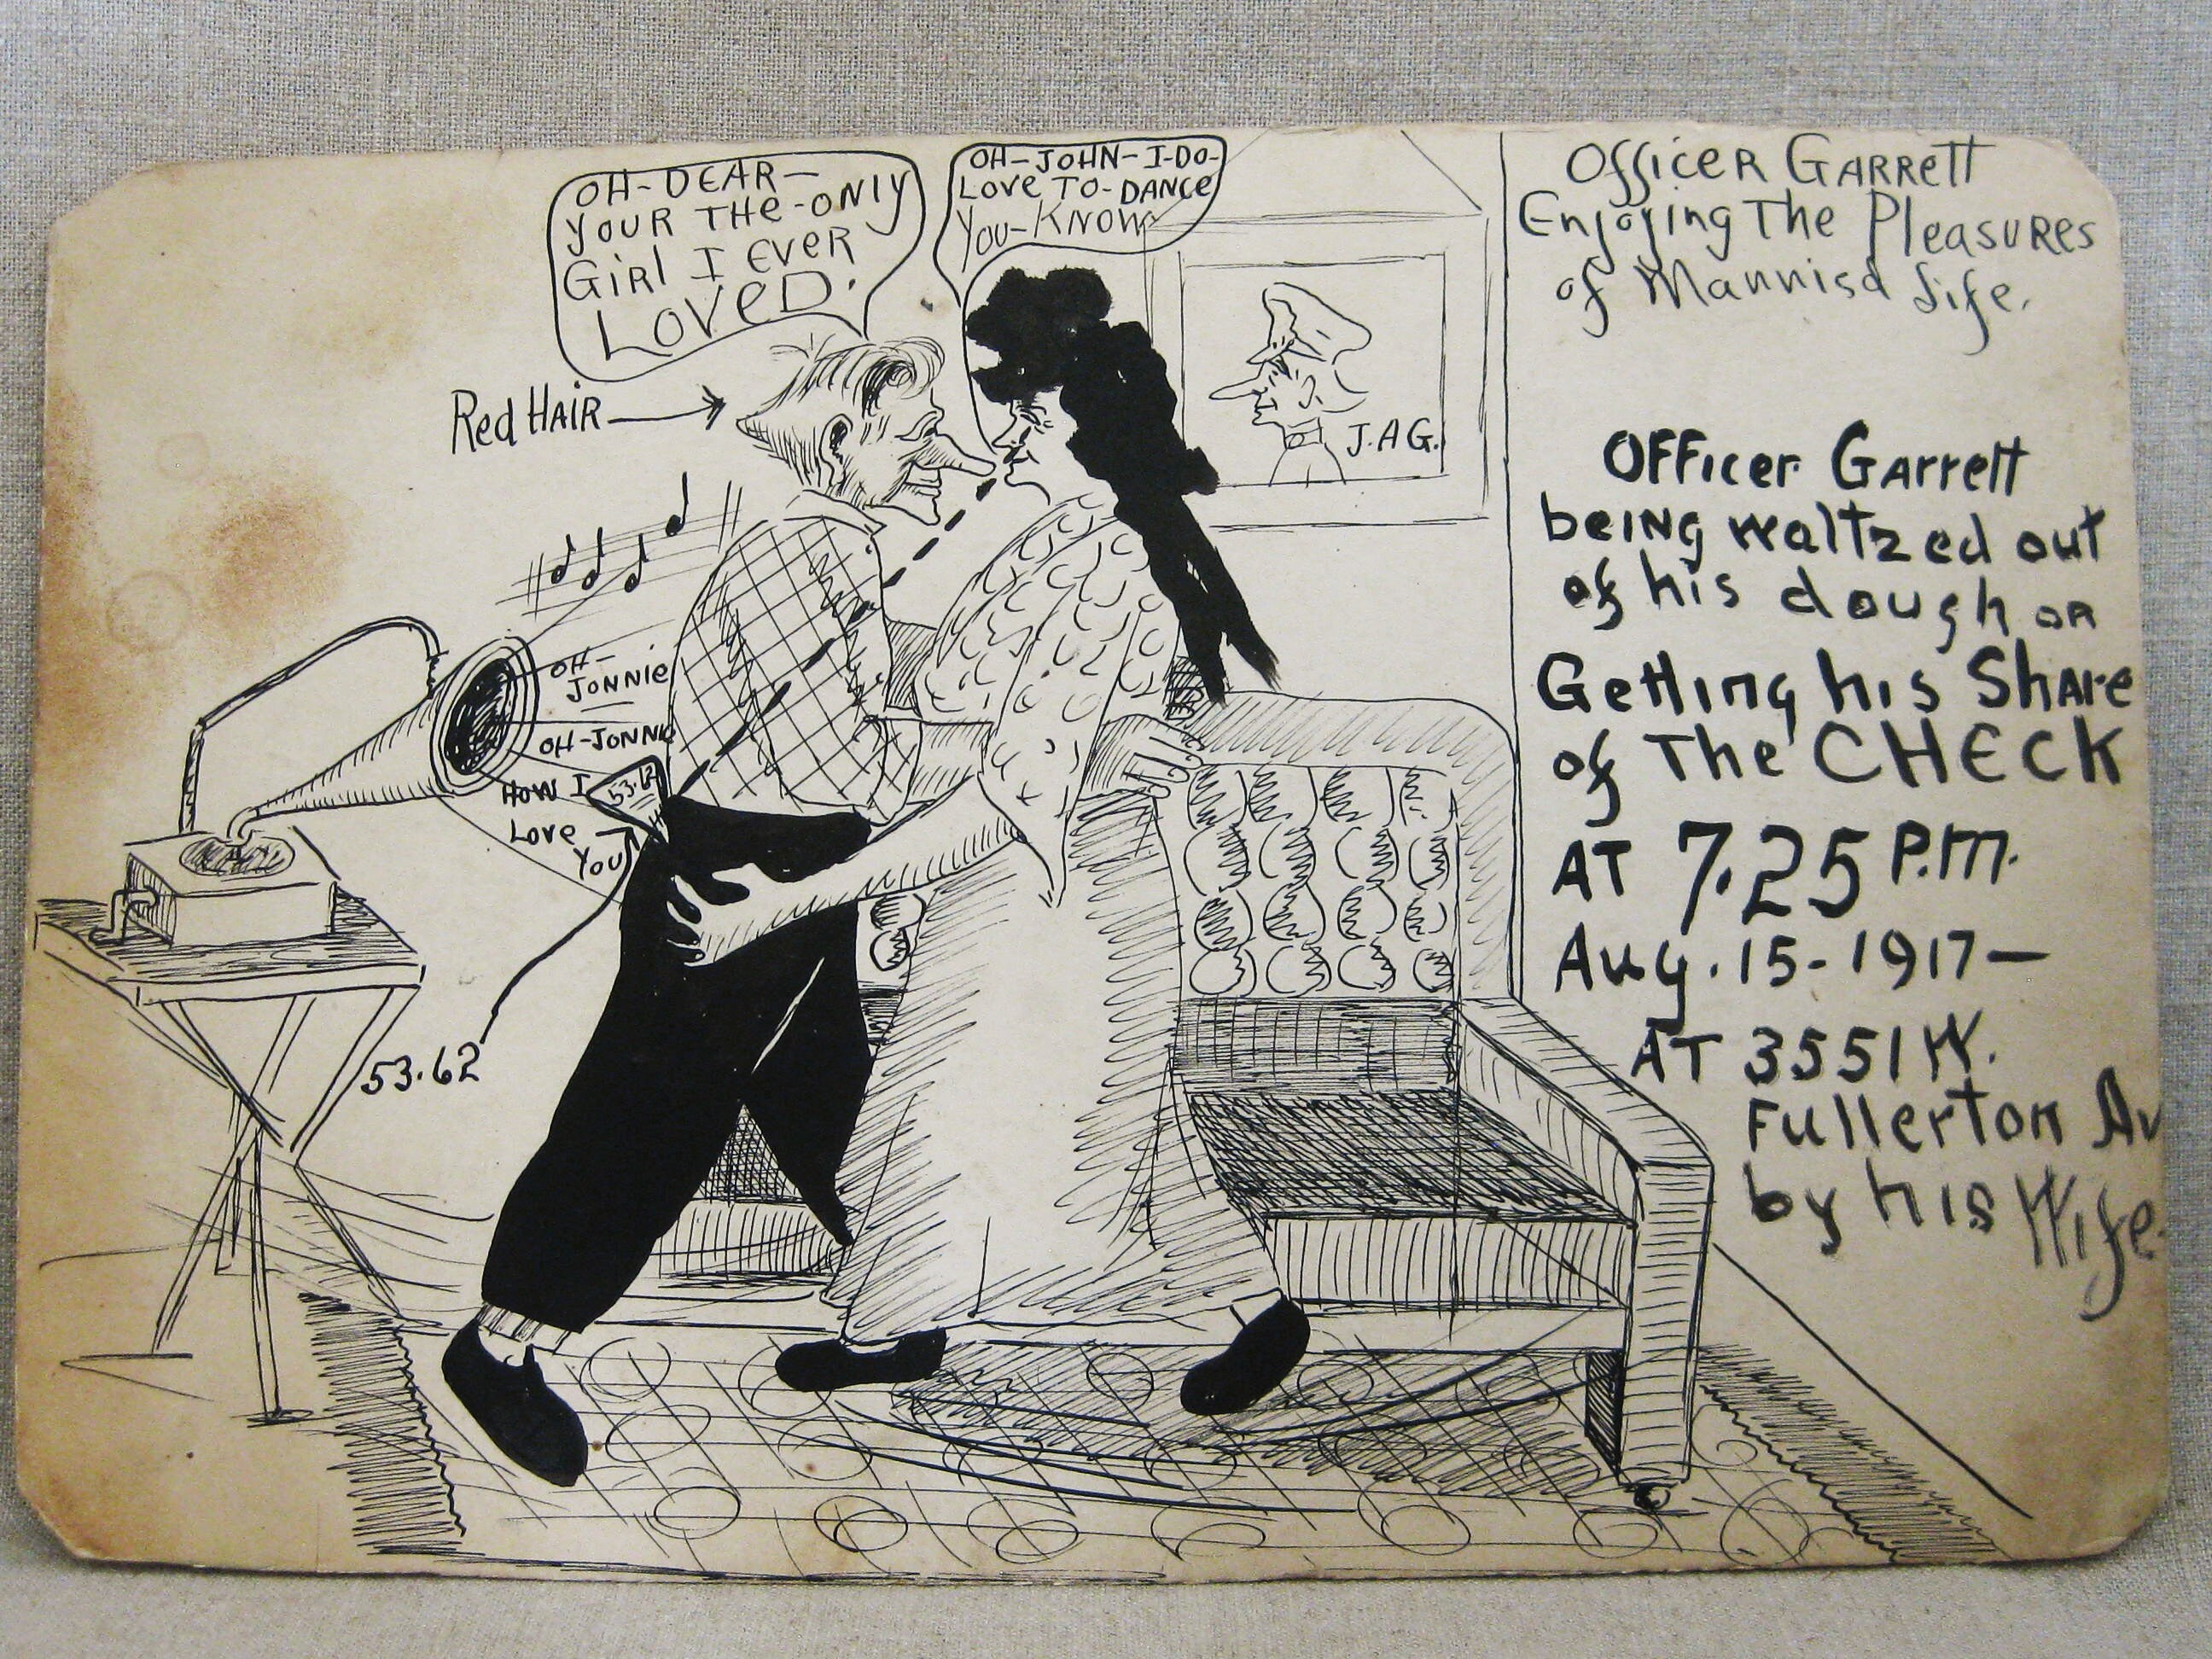 OH-DEAR-
YOUR THE-ONLY
GIRL I EVER
LOVED.
OH-JOHN-I-DO-
LOVE TO-DANCE
YOU-KNOW
Red HAIR
J.A G.
OH-
JONNIE
OH-JONNIE
HOW I
Love
You
53.62
53.62
OfficeR GARRett
Enjoying The PleasuRes
of Mannisd Life.
OFFicer Garrett
being waltzed out
of his dough or
Getting his Share
of The CHECK
AT 7.25 P.M.
Aug. 15-1917-
AT 3551 W.
Fullerton Av
by his Wife.